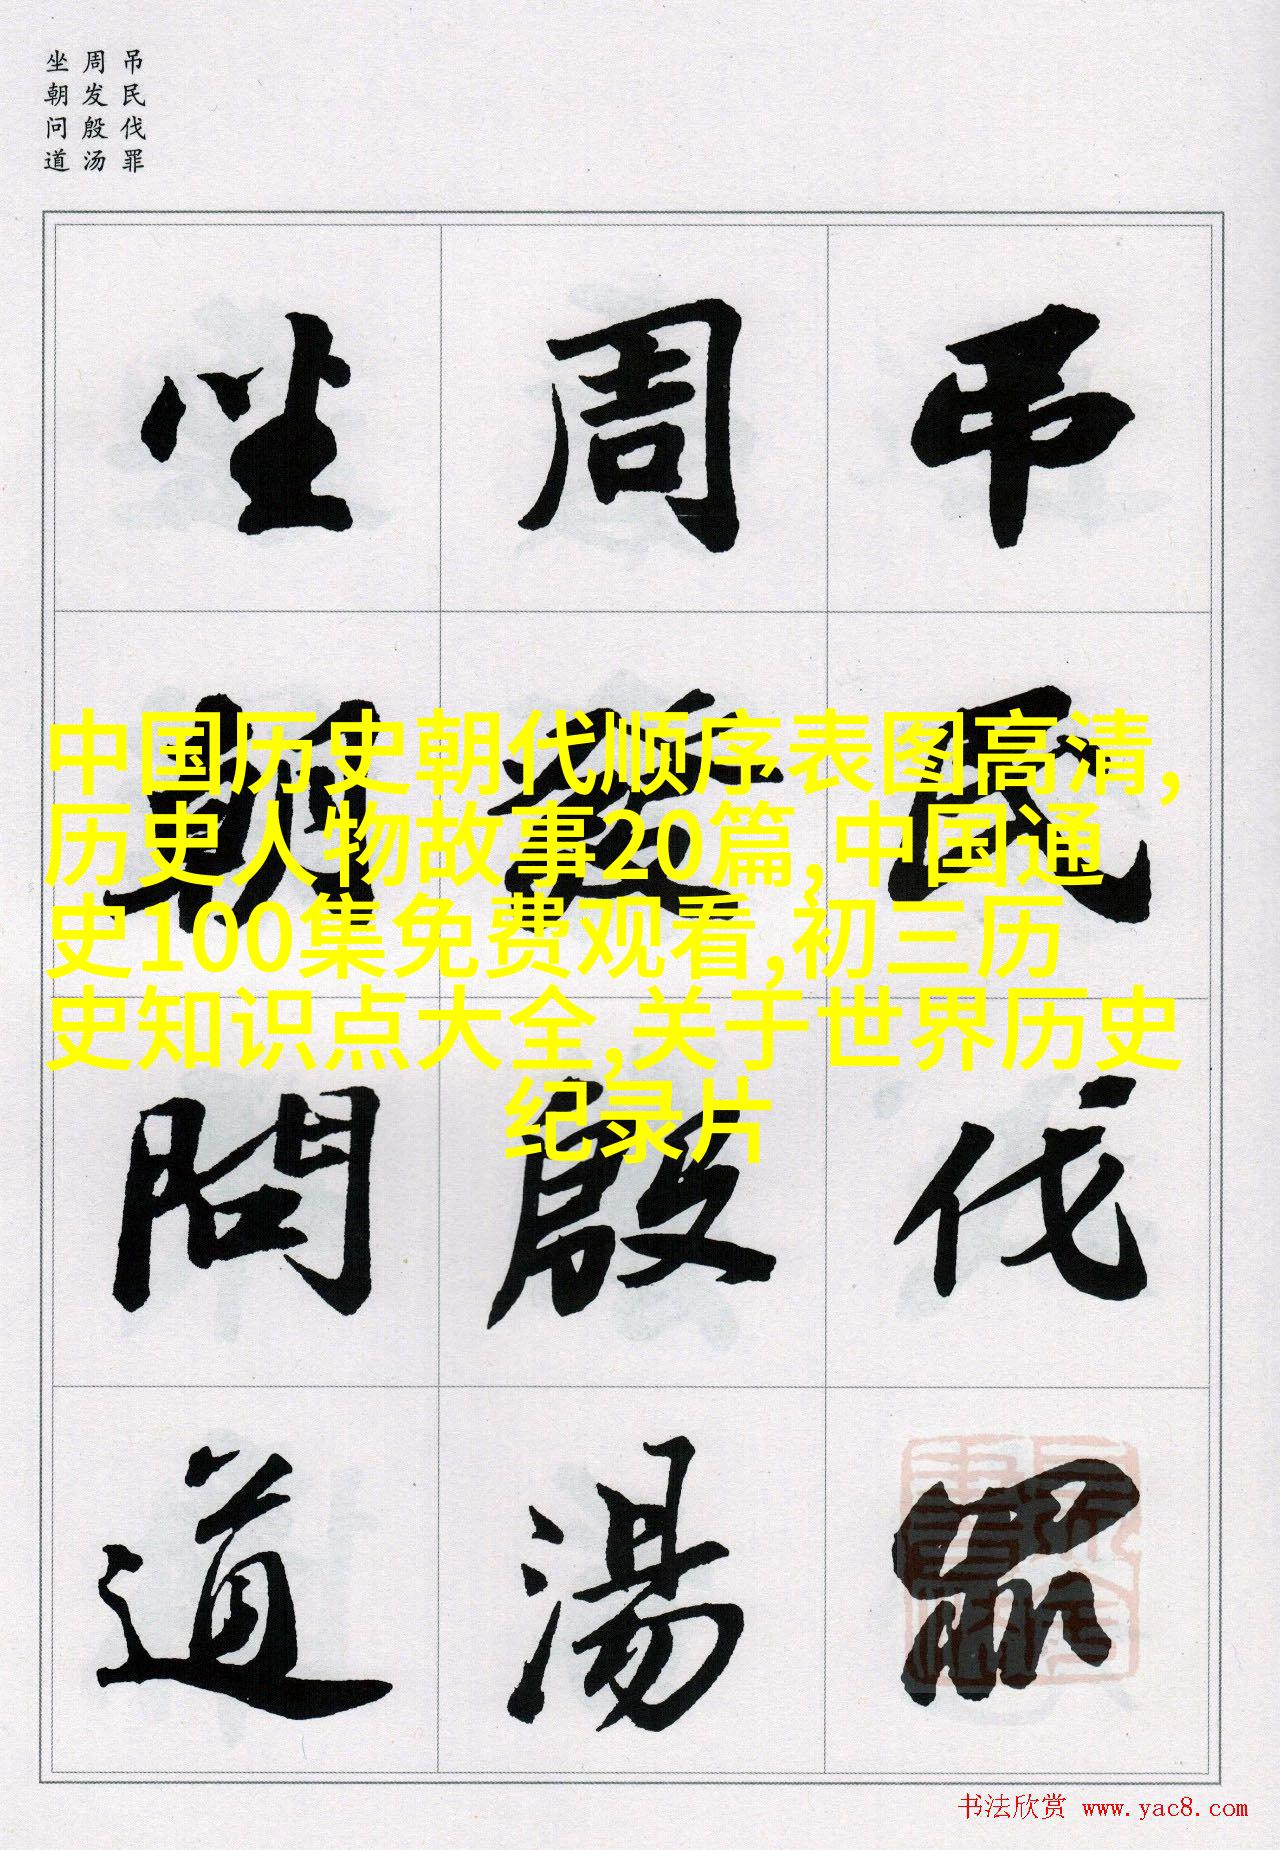 吊民伐罪
周发殷汤
坐朝问道
吊民伐罪
周發殷湯
坐朝問道
中国历史朝代顺序表图高清,
历史人物故事20篇,中国通
史100集免费观看,初三历
史知识点大全,关于世界历史
纪录片
书法欣赏 www.yac8.com